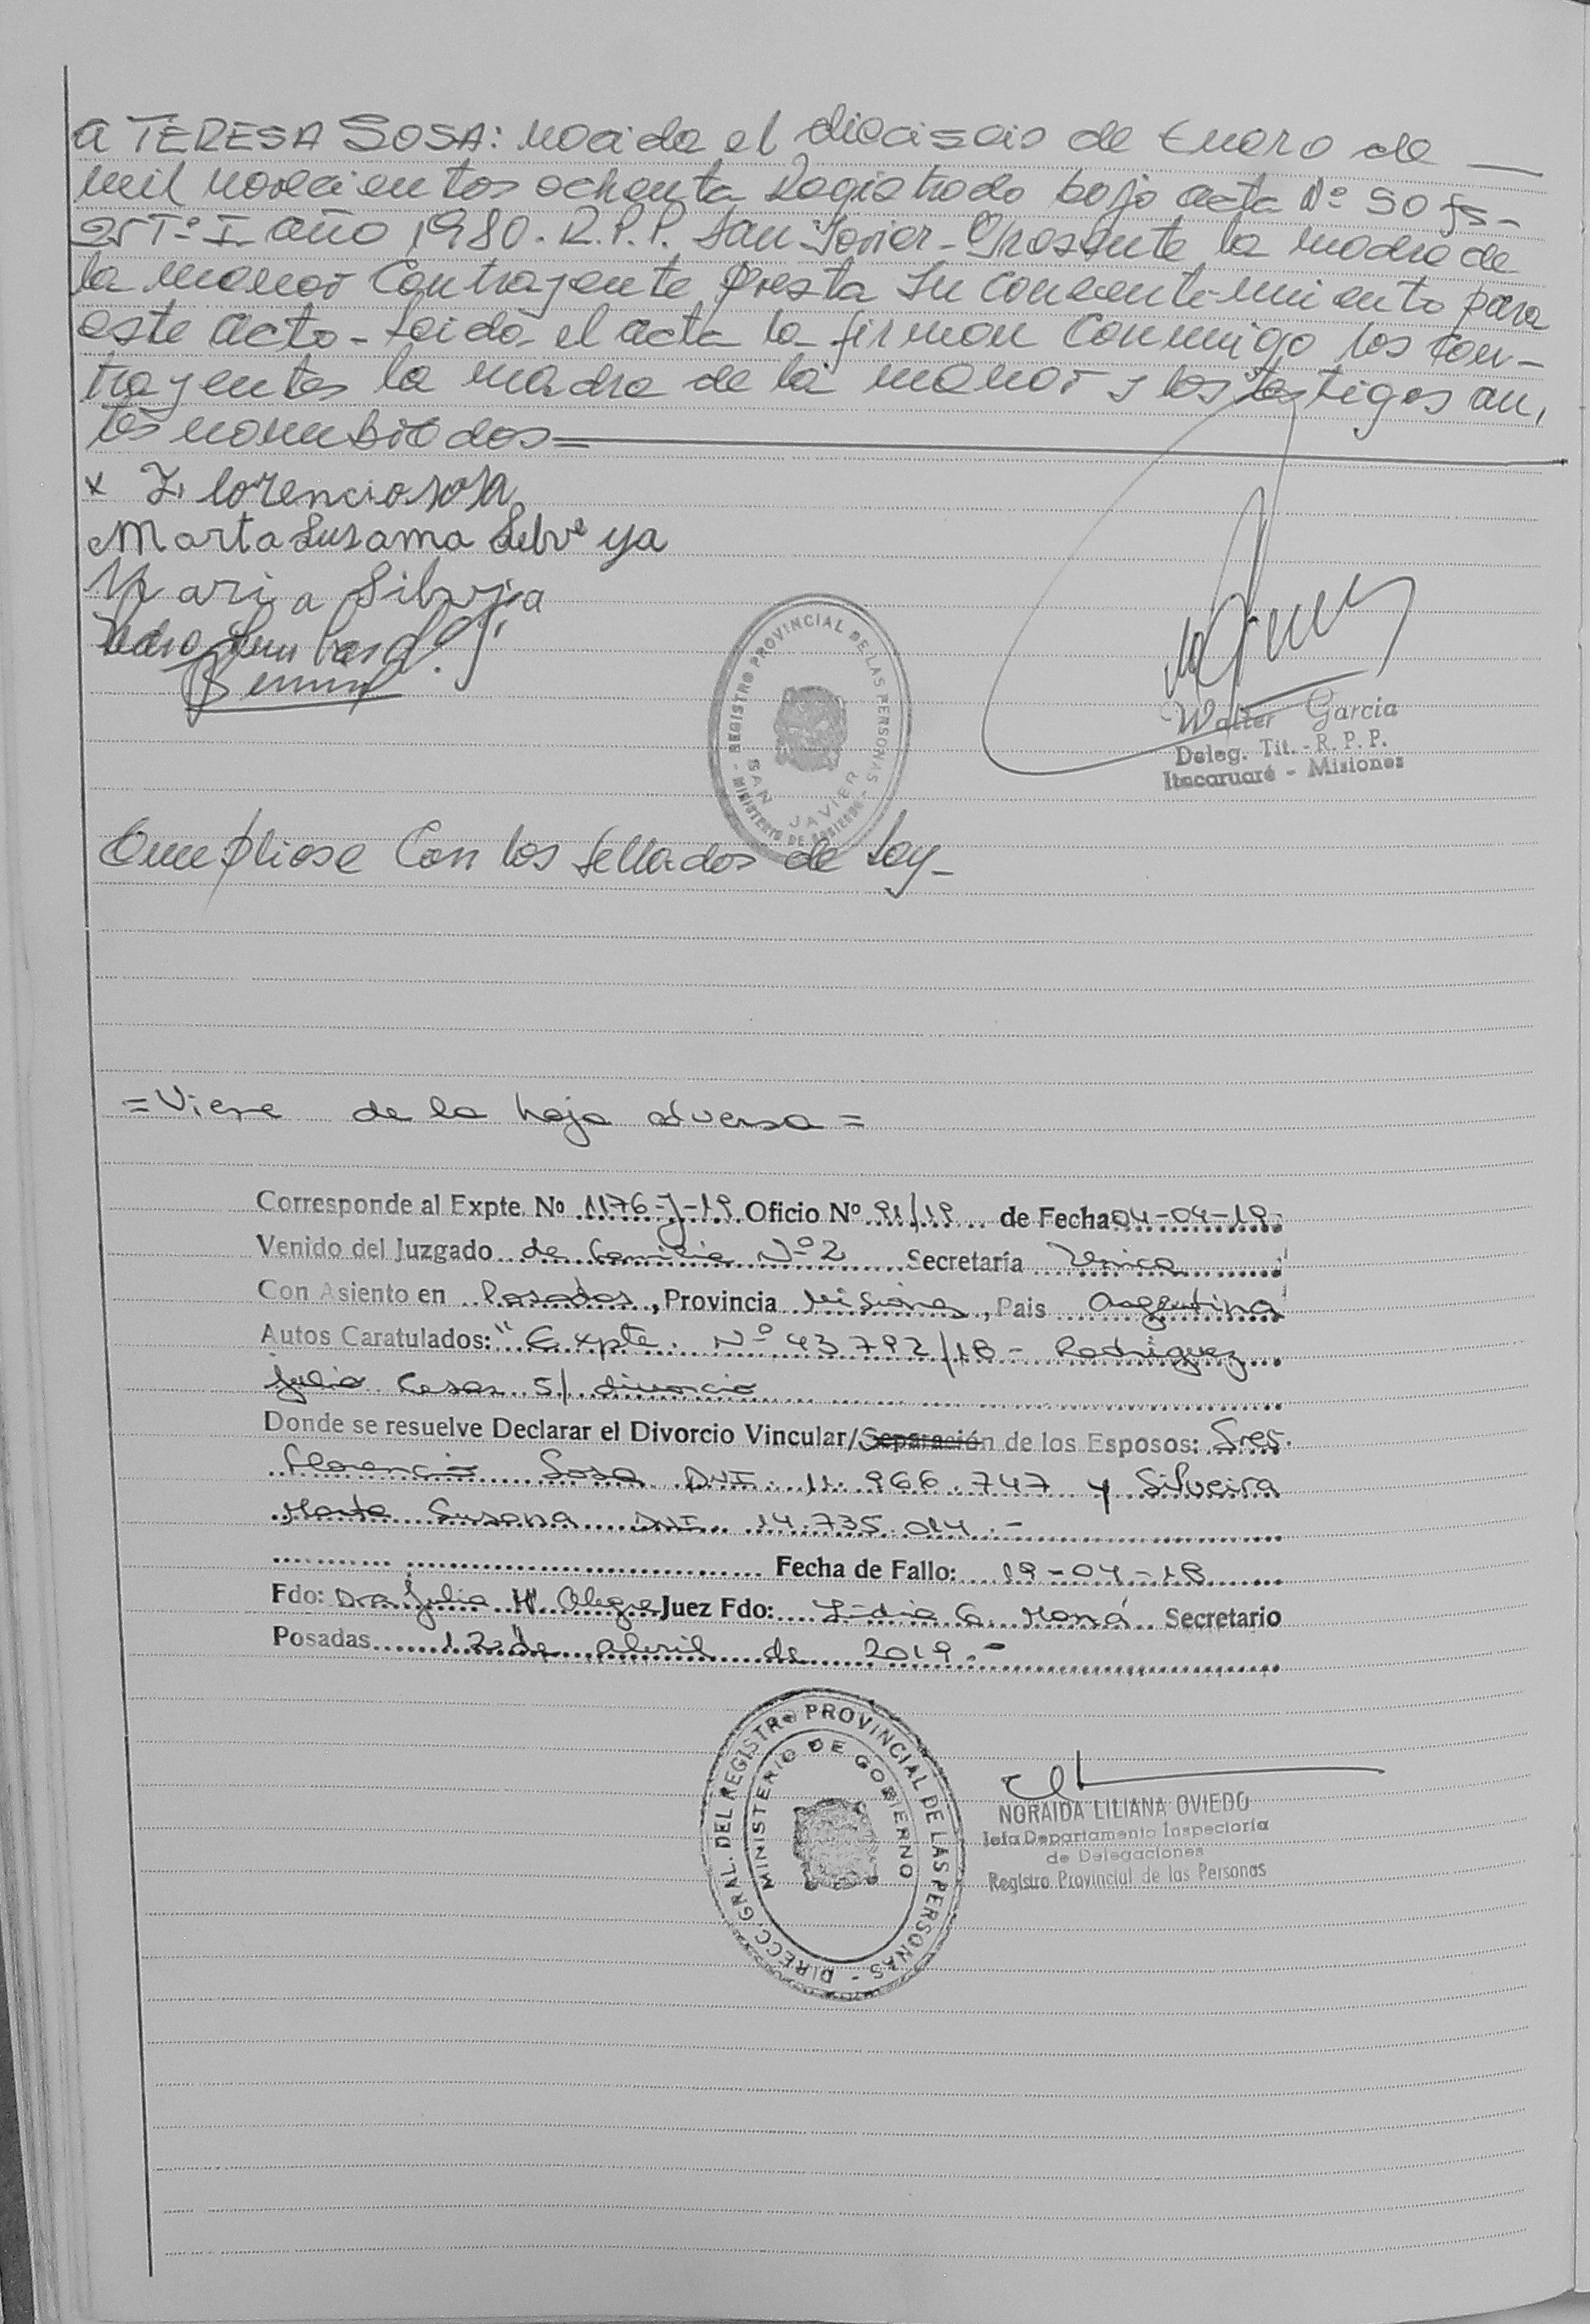 a TERESA SOSA: nacida el dieciseis de Enero de
mil novecientos ochenta Registrado bajo acta Nº 50 fs-
25 Tº I año 1980. R.P.P. San Javier - Presente la madre de
la menor Contrayente presta su consentimiento para
este acto - Leida el acta la firman Conmigo los Con-
trayentes la madre de la menor y los testigos an,
tes nombrados=
x Florencio sosa
Marta Susama Silveya
Maria Silvyia
REGISTRO PROVINCIAL DE LAS PERSONAS - MINISTERIO DE GOBIERNO -
SAN JAVIER
Walter Garcia
Deleg. Tit. - R. P. P.
Itacaruaré - Misiones
Cumpliose Con los Sellados de Ley-
= Viene de la hoja adversa =
Corresponde al Expte. No 1176-J-19 Oficio Nº 91/19 de Fecha 04-04-19-
Venido del Juzgado de Familia Nº 2 Secretaría Unica
Con Asiento en Posadas, Provincia Misiones, Pais Argentina
Autos Caratulados: "Expte. Nº 43792/18 - Rodriguez
Julio Cesar S/ divorcio
Donde se resuelve Declarar el Divorcio Vincular/Separación de los Esposos: Sres.
Florencio Sosa DNI. 11.966.747 y Silveira
Marta Susana DNI. 14.735.014.-
Fecha de Fallo: 19-04-18
Fdo: Dra Julia H. Alegre Juez Fdo: Lidia G. Secretario
Posadas 12 de abril de 2019.-
DIRECC. GRAL. DEL REGISTRO PROVINCIAL DE LAS PERSONAS -
MINISTERIO DE GOBIERNO
NORAIDA LILIANA OVIEDO
Jefa Departamento Inspectoria
de Delegaciones
Registro Provincial de las Personas